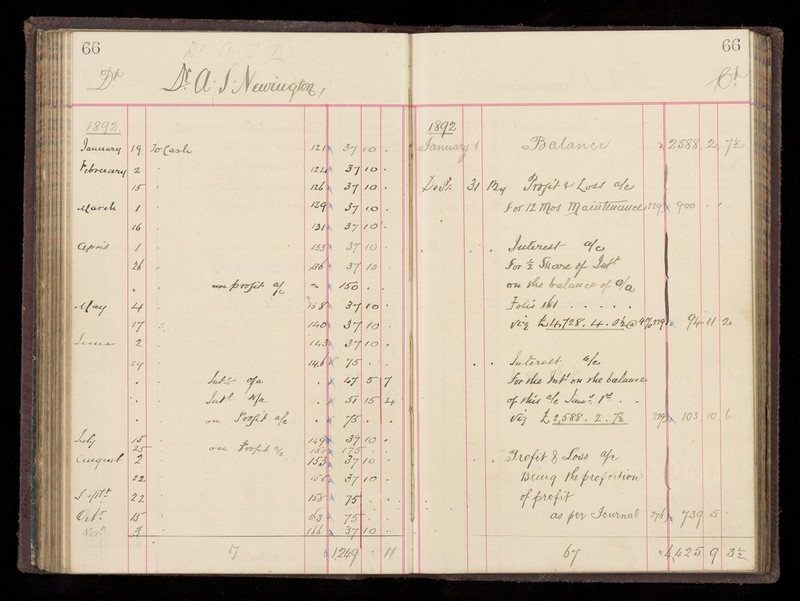 66
Dr. Dr. A. S. Newington,
1892.
January 19 To Cash 121 37 10 -
February 2 " 124 37 10 -
15 " 126 37 10 -
March 1 " 129 37 10 -
16 " 131 37 10 -
April 1 " 133 37 10 -
26 " 136 37 10
" " on profit a/c " 150 - -
May 4 " 138 37 10 -
17 " 140 37 10 -
June 2 " 143 37 10 -
29 " 146 75 - -
" " Intt. a/c " 47 5 7
" " Intt. a/c " 51 15 4
" " on Profit a/c " 75 - -
July 15 " 149 37 10 -
25 " on Profit a/c 150 175 - -
August 2 " 153 37 10 -
22 " 37 10 -
Septr. 22 " 158 75 - -
Octr. 15 " 163 75 - -
Novr. 3 " 166 37 10 -
67 1,249 11
66
Cr.
1892
January 1 Balance 2588 2 7½
Decr. 31 By Profit & Loss a/c
For 12 Mos Maintenance 279 900 - -
" " Interest a/c
For ½ Share of Intt
on the balance of a/c
Folio 161 . . . . .
viz £4,728. 4. 0½ @ 4% 279 94 11 2
" " Interest a/c
For the Intt on the balance
of this a/c Jany. 1st. - -
viz £2,588. 2. 7½ 279 103 10 6
" " Profit & Loss a/c
Being the proportion
of profit
as per Journal 276 739 5 -
67 4,425 9 3½